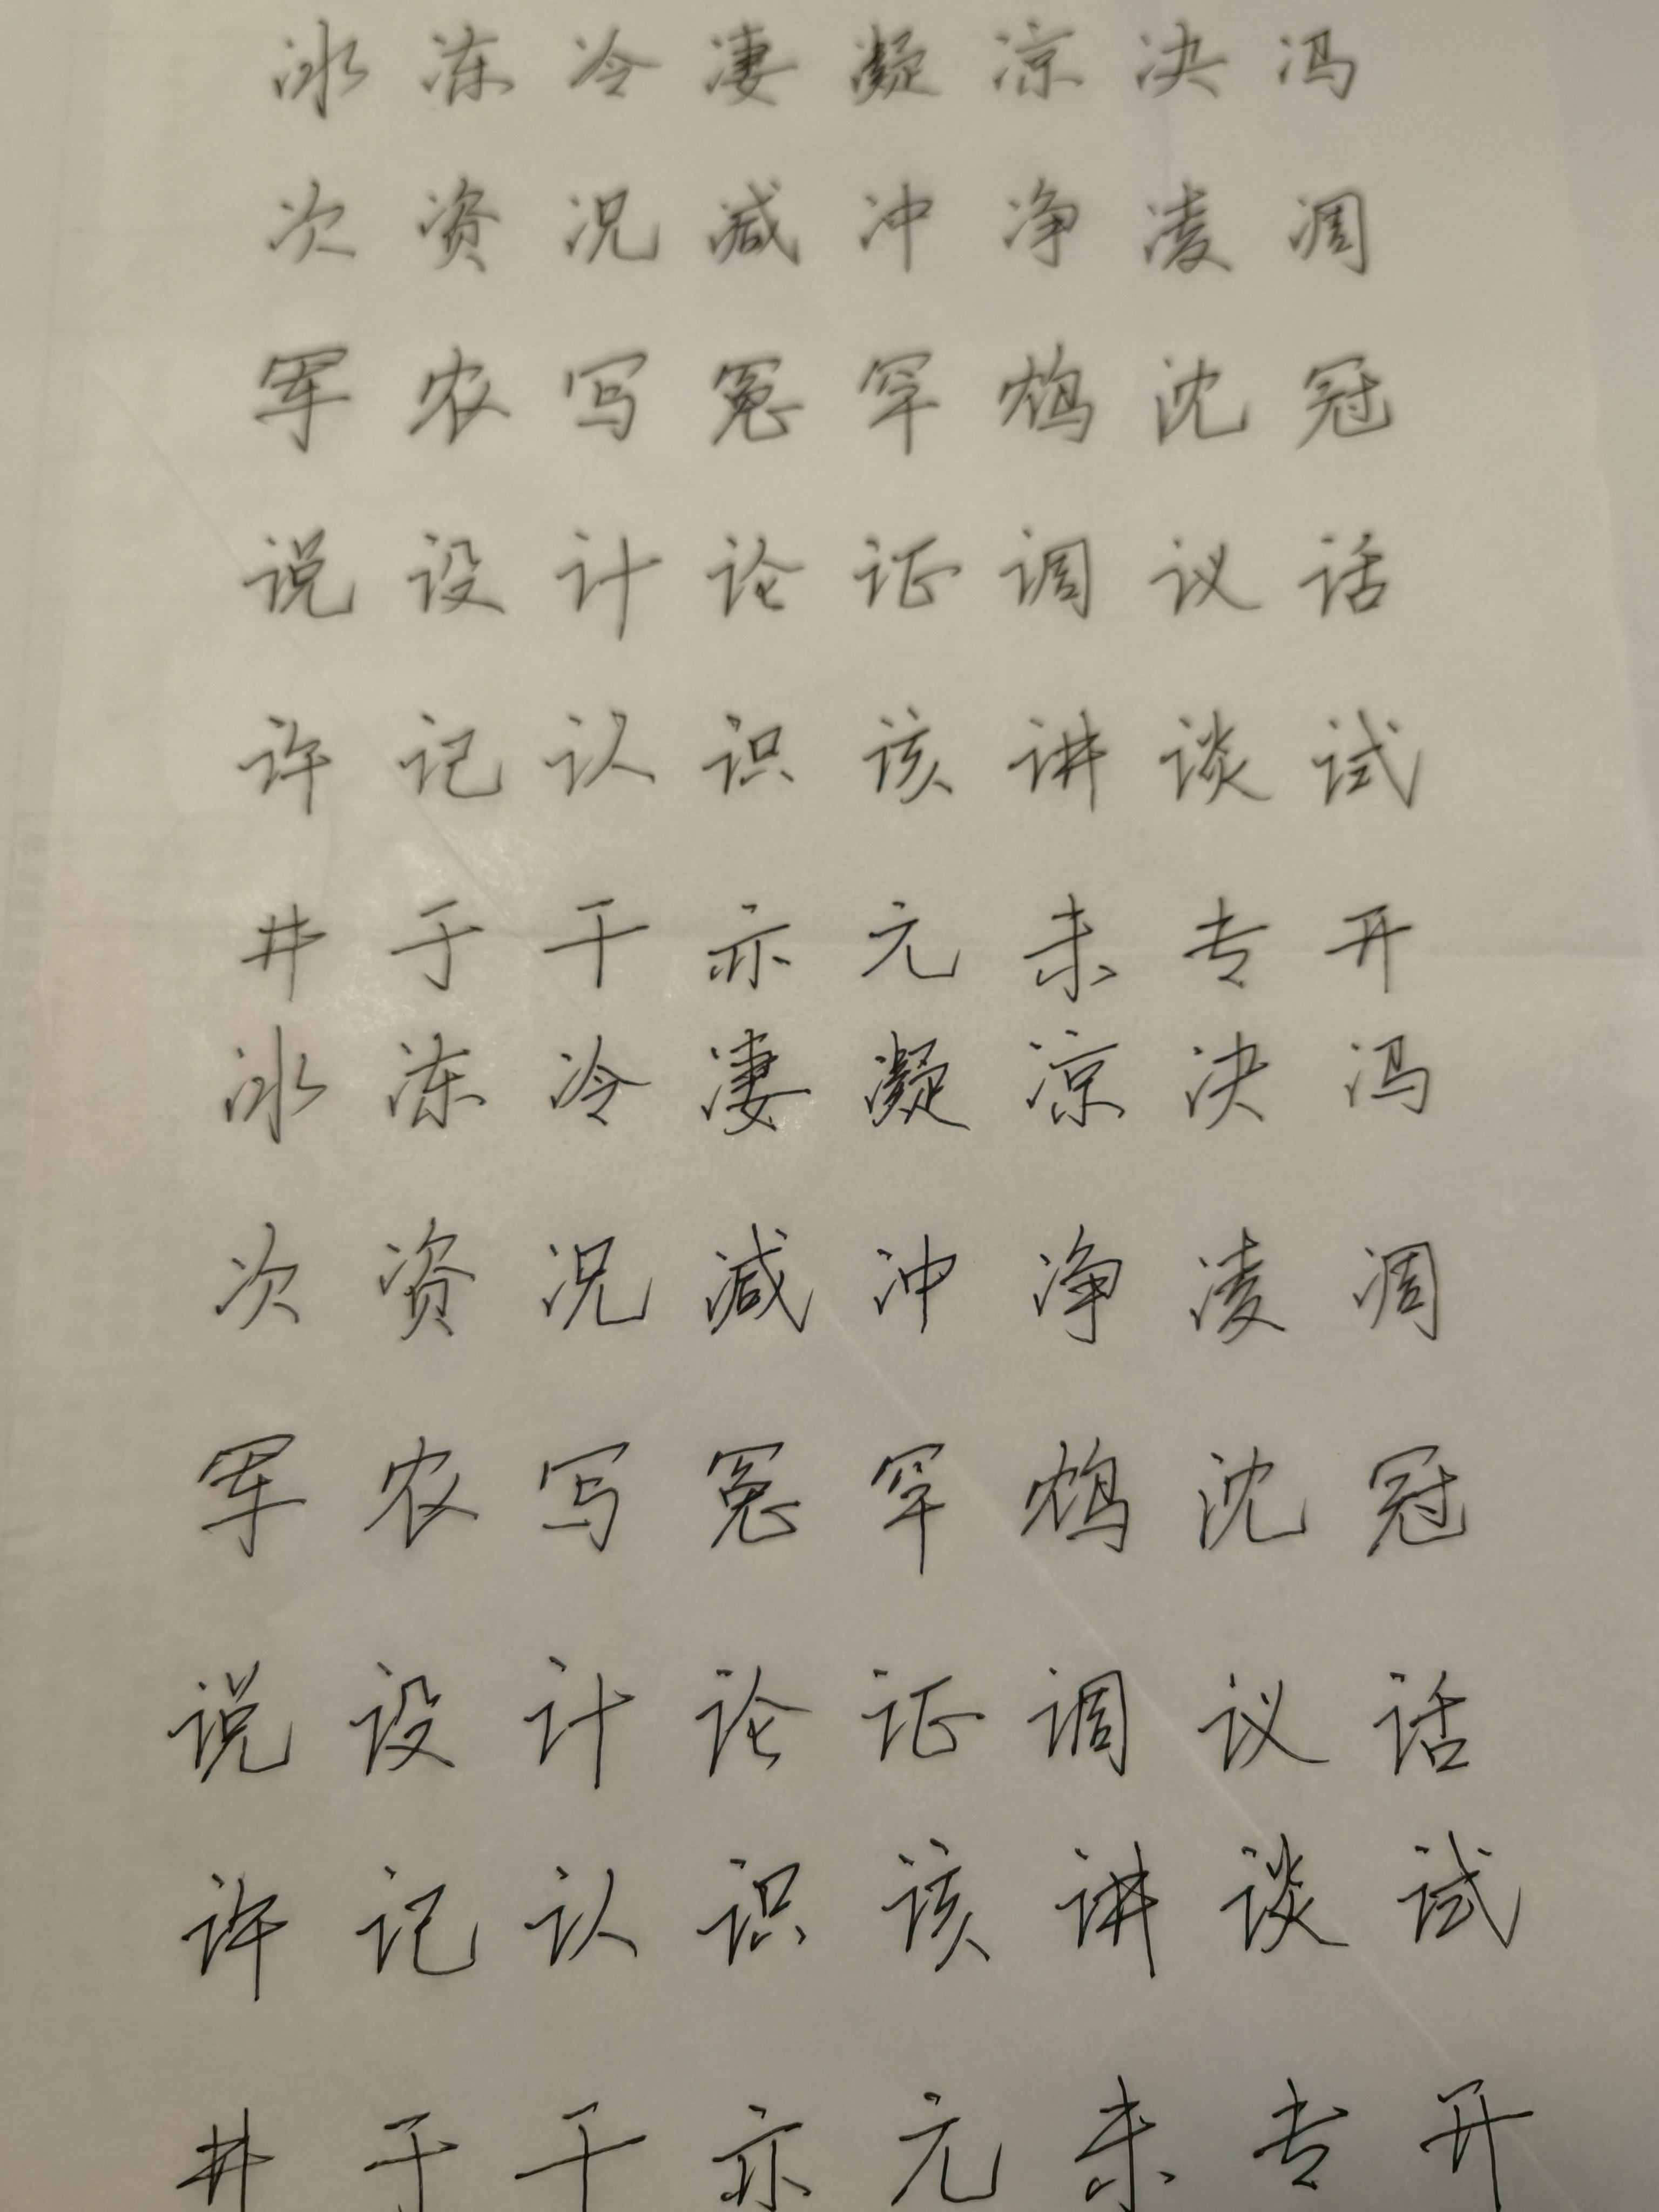 冰 冻 冷 凄 凝 凉 决 冯
次 资 况 减 冲 净 凌 凋
军 农 写 冤 罕 鸩 沈 冠
说 设 计 论 证 调 议 话
许 记 认 识 该 讲 谈 试
井 于 干 亦 元 未 专 开
冰 冻 冷 凄 凝 凉 决 冯
次 资 况 减 冲 净 凌 凋
军 农 写 冤 罕 鸩 沈 冠
说 设 计 论 证 调 议 话
许 记 认 识 该 讲 谈 试
井 于 干 亦 元 未 专 开